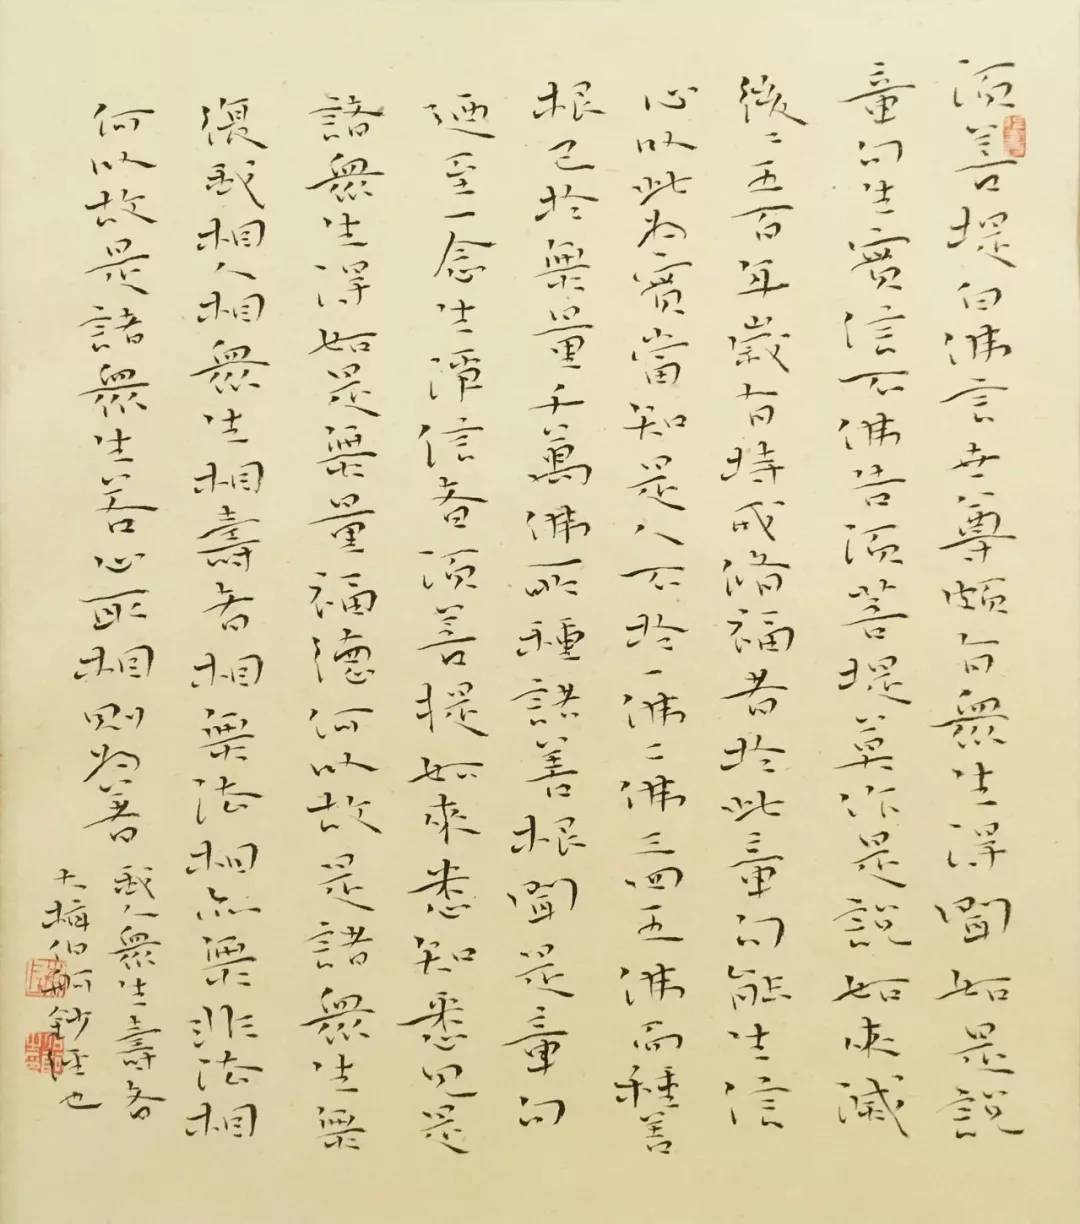 須菩提白佛言世尊頗有眾生得聞如是說
章句生實信不佛告須菩提莫作是說如來滅
後二五百年歲有持戒脩福者於此章句能生信
心以此為實當知是人不於一佛二佛三四五佛而種善
根已於無量千萬佛所種諸善根聞是章句
迺至一念生淨信者須菩提如來悉知悉見是
諸眾生得如是無量福德何以故是諸眾生無
復我相人相眾生相壽者相無法相亦無非法相
何以故是諸眾生若心取相則為著
我人眾生壽者
梅伯舸鈔經也